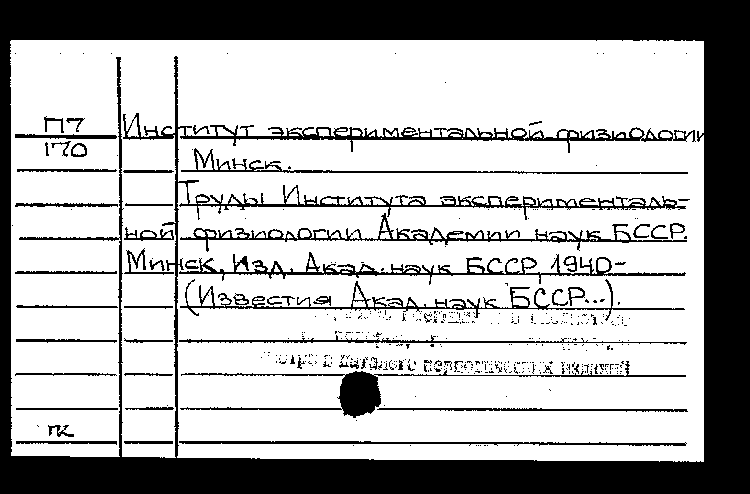 П7 Институт экспериментальной физиологии
170 Минск.
Труды Института эксперименталь-
ной физиологии Академии наук БССР.
Минск, Изд. Акад. наук БССР, 1940-
(Известия Акад. наук БССР...).
в каталоге периодических изданий
ПК